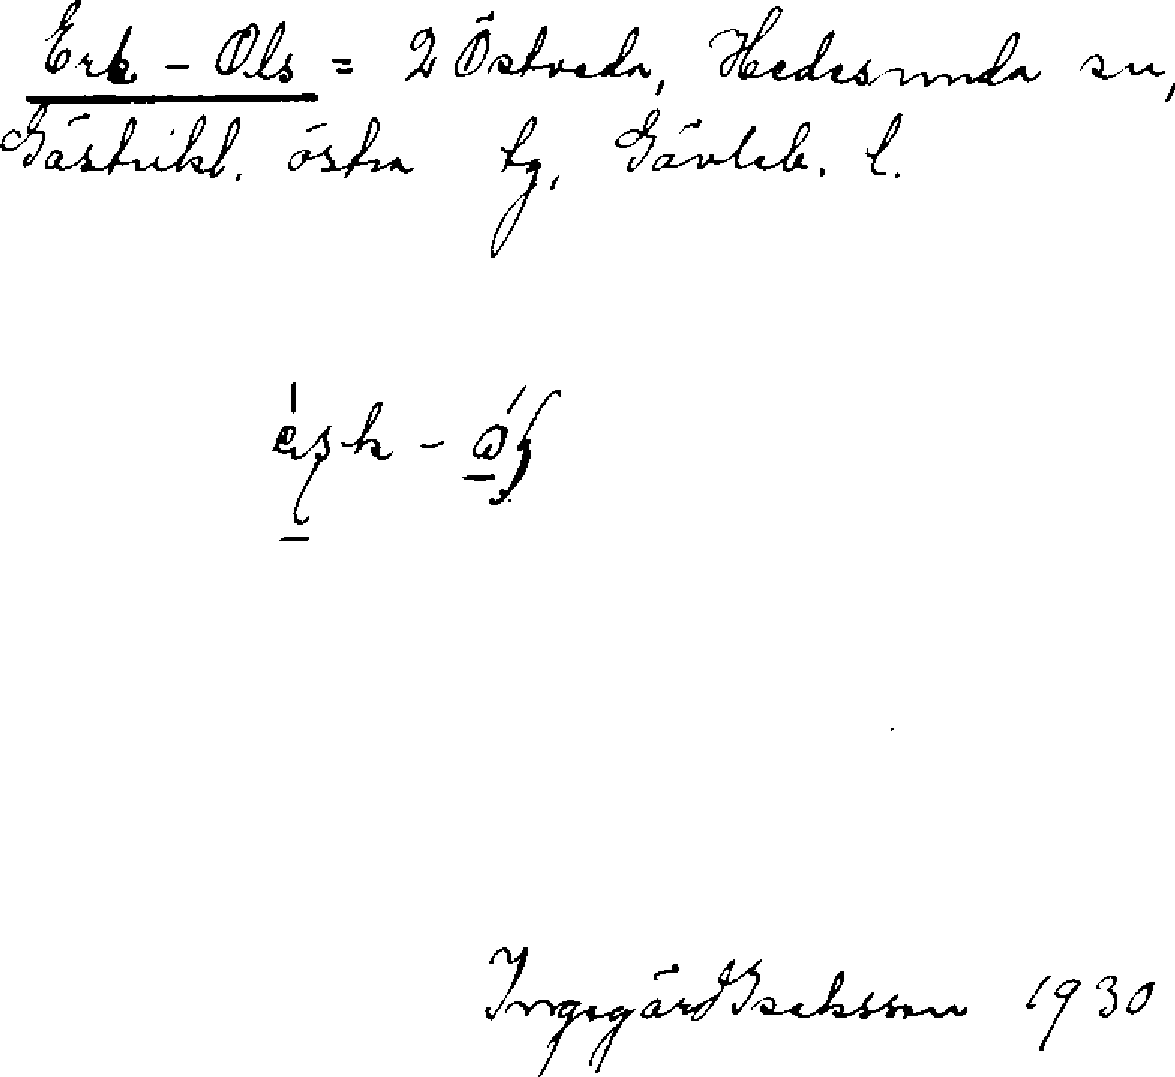 Erk - Ols = 2 Östveda, Hedesunda sn,
Gästrikl. östra tg, Gävleb. l.
Ingegärd Isaksson 1930